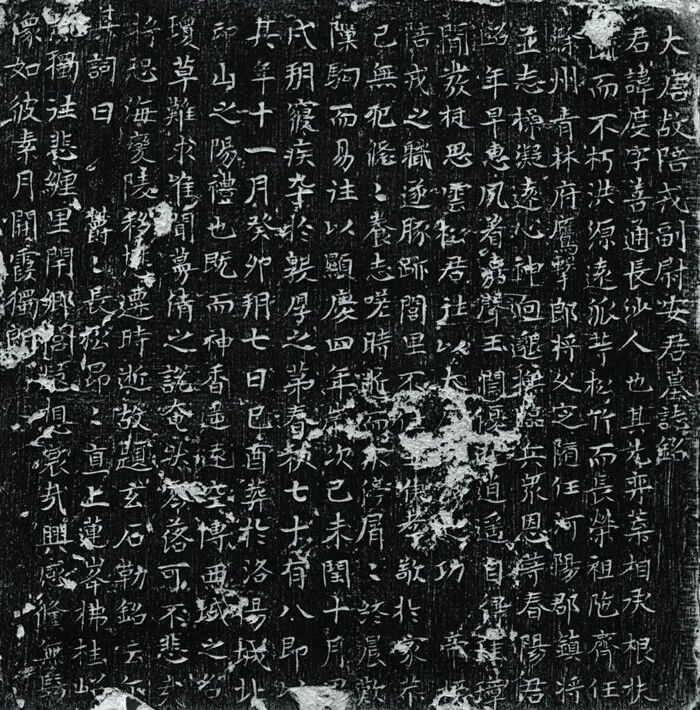 大唐故陪戎副尉安君墓誌銘
君諱度字喜通長沙人也其先弈葉相承根扶
而不朽洪源遠派等松竹而長榮祖陁齊任
滁州青林府鷹擊郎將父定隨任河陽郡鎮將
並志標凝遠心神迥邈撫臨兵眾恩蒋春陽君
齠年早惠夙著嘉聲玉潤優道遥自得珪璋
閒發捷思雲君往以大之功帝授
陪戎之職遂豚跡閭里不恭敬於家恭
己無犯修〻養志嗟時逝而不停屑〻終晨歎
隟駒而易往以顯慶四年歲次己未閏十月
戊朔寢疾卒於親厚之第春秋七十有八即
其年十一月癸卯朔七日己酉葬於洛陽城北
邙山之陽禮也既而神香遥遠空傳西域之名
瓊草難求唯聞夢倩之說奄矣零落可不悲哉
將恐海變陵移遷時逝故題玄石勒銘云尔
其詞曰 鬱〻長松昂〻直上蓮峯拂桂
獨往悲纏里閈鄉閭題想哀哉興感條無
懷如彼素月開霞獨朗